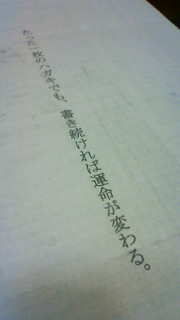 たった一枚のハガキでも、書き続ければ運命が変わる。